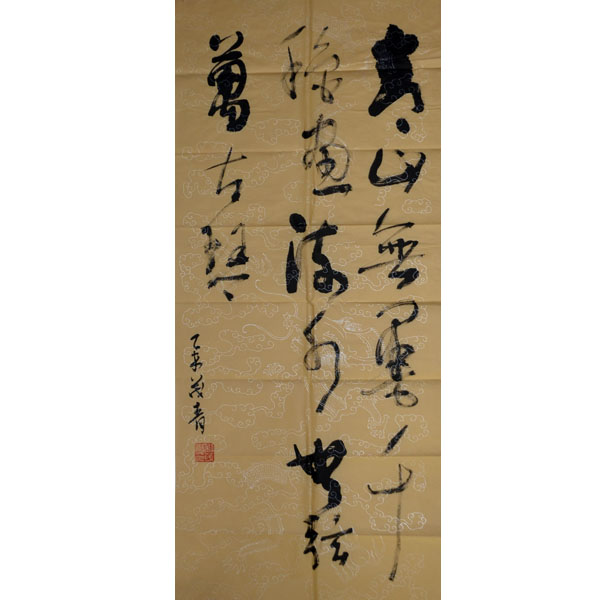 青山無墨千
穐畫流水無弦
萬古琴
乙未 青